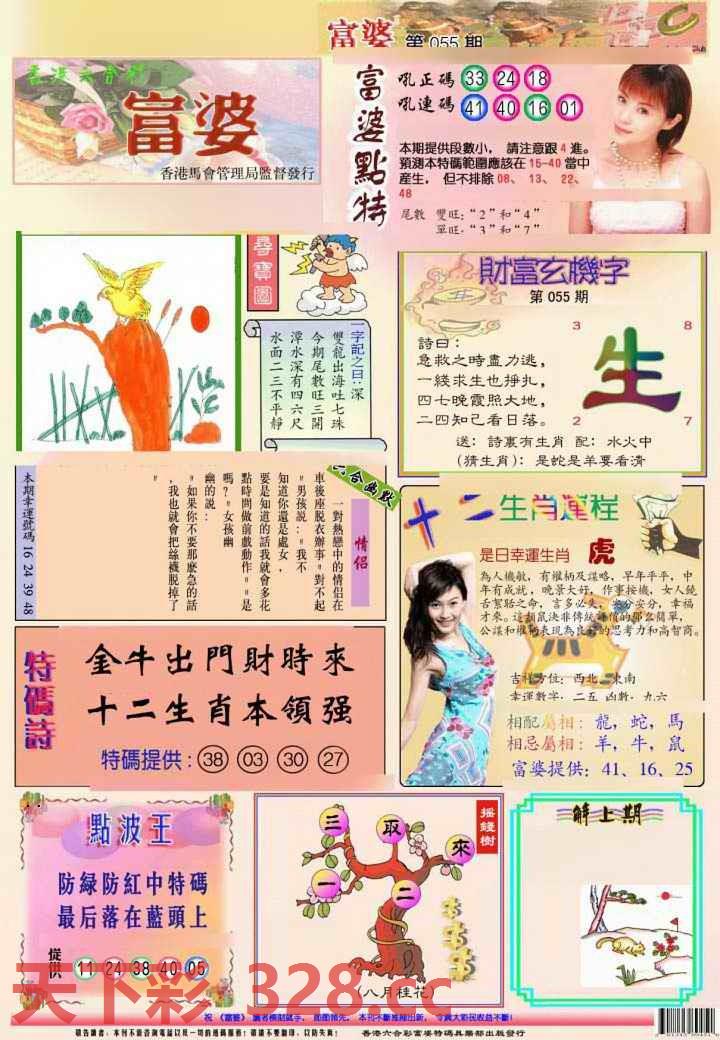 富婆 第 055 期
富婆六合彩
富婆
香港馬會管理局監督發行
富婆點特
吼正碼 33 24 18
吼連碼 41 40 16 01
本期提供段數小， 請注意跟 4 進。
預測本特碼範圍應該在 15-40 當中
産生， 但不排除 08、 13、 22、
48
尾數 雙旺：“2”和“4”
單旺：“3”和“7”
尋寶圖
一字記之曰：深
雙龍出海吐七珠
今期尾數旺三開
潭水深有四六尺
水面二三不平靜
財富玄機字
第 055 期
3 8
詩曰：
急救之時盡力逃，
一綫求生也掙扎，
四七晚霞照大地，
二四知己看日落。
生
2 7
送：詩裏有生肖 配：水火中
(猜生肖)：是蛇是羊要看清
六合幽默
情侣
一對熱戀中的情侣在
車後座脱衣辦事。對不起
。男孩説：。我不
知道你還是處女，
要是知道的話我就會多花
點時間做前戲動作。。是
嗎？。女孩幽
幽的説：
。如果你不要那麽急的話
，我也就會把絲襪脱掉了
。
本期幸運號碼 16 24 39 48
十二生肖運程
是日幸運生肖 虎
為人機敏，有權柄及謀略，早年平平，中
年有成就，晚景大好，作事按機，女人饒
舌幫賂之命，言多必失，安分安分，幸福
公謀和權柄表現為良好的思考力和高智商。
吉祥方位：西北、東南
幸運數字：二五 凶數：九六
相配屬相：龍，蛇，馬
相忌屬相：羊，牛，鼠
富婆提供：41、16、25
特碼詩
金牛出門財時來
十二生肖本領强
特碼提供：38 03 30 27
點波王
防緑防紅中特碼
最后落在藍頭上
提供 11 24 38 40 05
摇錢樹
三 取 來
一 二
(八月桂花)
解上期
天下彩 328.cc
祝 《富婆》 讀者横財就手，
敬告讀者：本刊不設咨詢電話以及一切的透碼服務！敬請不要翻印，以防失真！
香港六合彩富婆特碼具樂部出版發行